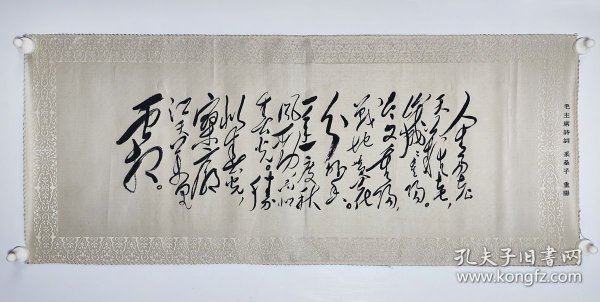 毛主席詩詞 采桑子 重陽
人生易老
天難老,
歲歲重陽。
今又重陽,
戰地黃花
分外香。
一年一度秋
風勁,不似
春光。勝
似春光,
寥廓
江天萬里
霜。
孔夫子旧书网
www.kongfz.com